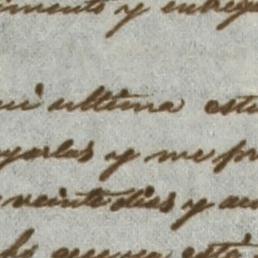 imento y entrega
mi ultima esta
yarlas y me pr
veinte dias y au